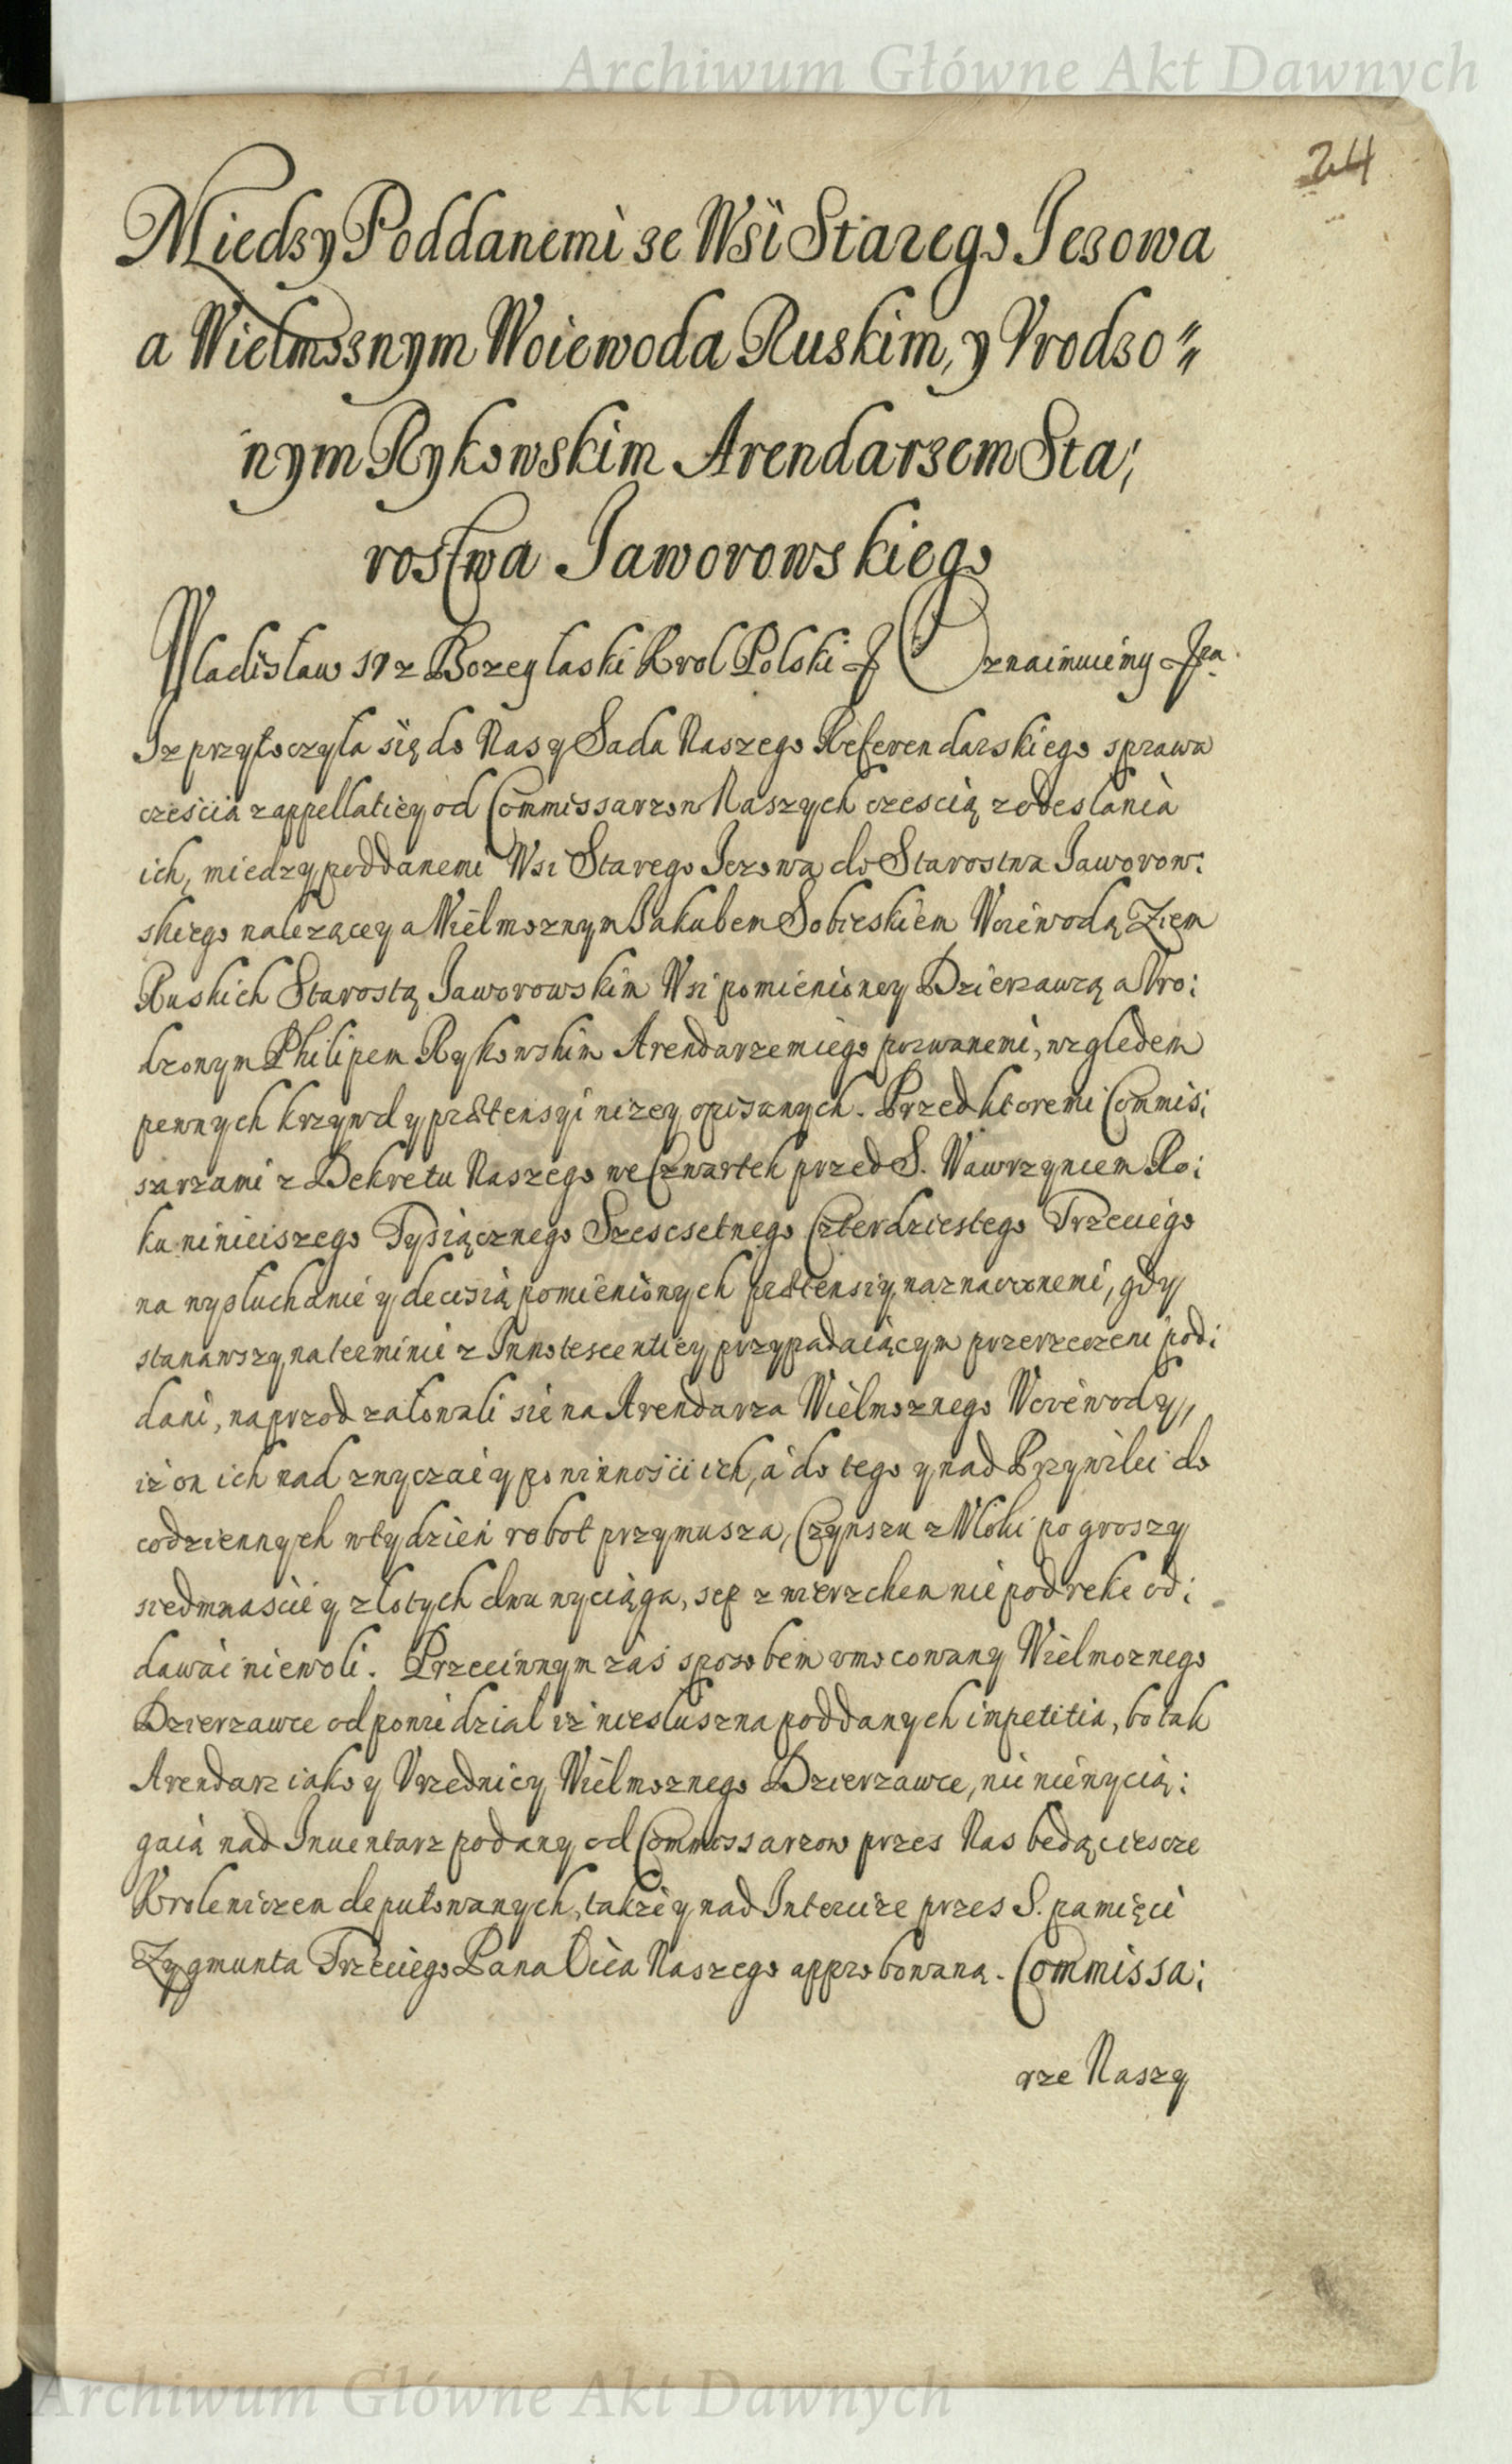 Archiwum Główne Akt Dawnych
24
Miedzy Poddanemi ze Wsi Starego Jezowa
a Wielmoznym Woiewoda Ruskim, y Vrodzo"
nym Rykowskim Arendarzem Sta;
rostwa Jaworowskiego
Wladislaw IV z Bozey laski Krol Polski Oznaimuiemy
Iz przytoczyla się do Nas y Sadu Naszego Referendarskiego sprawa
czescia z appellatiey od Commissarzow Naszych czescią z odeslania
ich, miedzy poddanemi Wsi Starego Jezowa do Starostwa Jaworow:
skiego nalezącey a Wielmoznym Jakubem Sobieskiem Woiewodą Ziem
Ruskich Starostą Jaworowskim Wsi pomienioney Dzierzawcą a Vro:
dzonym Philipem Rykowskim Arendarzem iego pozwanemi, wzgledem
pewnych krzywd y prætensyi nizey opisanych. Przed ktoremi Commis;
sarzami z Dekretu Naszego we Czwartek przed S. Wawrzyncem Ro;
ku ninieiszego Tysiącznego Szescsetnego Czterdziestego Trzeciego
na wysluchanie y decisią pomienionych prætensiy naznaczonemi, gdy
stanawszy na terminie z Innotescentiey przypadaiącym przerzeczeni pod;
dani, naprzod załowali sie na Arendarza Wielmoznego Woiewody,
iż on ich nad zwyczai y powinnosci ich, a do tego y nad Przywilei do
codziennych w tydzien robot przymusza, Czynszu z Wloki po groszy
siedmnascie y zlotych dwu wyciąga, sep z wierzchem nie pod reke od;
dawać niewoli. Przeciwnym zaś sposobem vmocowany Wielmoznego
Dzierzawce odpowiedzial iz niesluszna poddanych impetitia, bo tak
Arendarz iako y Vrzednicy Wielmoznego Dzierzawce, nic nie wycią:
gaią nad Inuentarz podany od Commissarzow przez Nas będąc ieszcze
Krolewiczem deputowanych, takze y nad Intercize przez S. pamięci
Zygmunta Trzeciego Pana Oica Naszego approbowaną. Commissa;
rze Naszy
Archiwum Główne Akt Dawnych